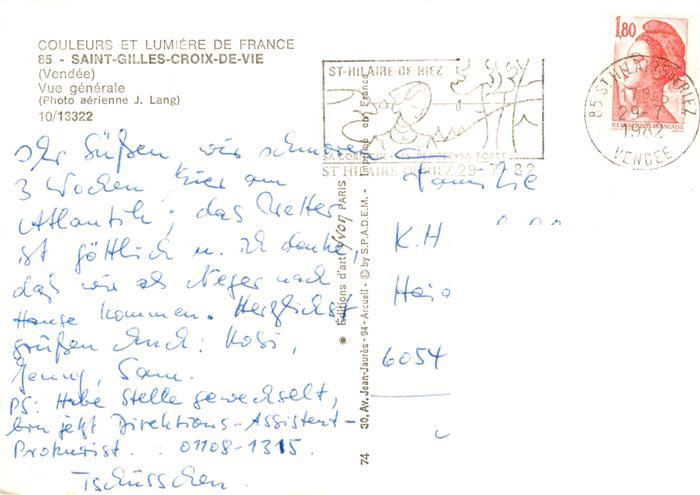 COULEURS ET LUMIÈRE DE FRANCE
85 - SAINT-GILLES-CROIX-DE-VIE
(Vendée)
Vue générale
(Photo aérienne J. Lang)
10/13322
Ihr Süßen, wir schmoren
3 Wochen hier am
Atlantik; das Wetter
ist göttlich u. ich denke,
daß wir als Neger nach
Hause kommen. Herzlichst
grüßen Euch: Kobi,
Jenny, Sam.
PS: Habe Stelle gewechselt,
bin jetzt Direktions-Assistent-
Prokurist. 01108-1315.
Tschüsschen.
ST-HILAIRE-DE-RIEZ
SA FORET
ST HILAIRE DE RIEZ 29-7-82
1,80
85 ST HILAIRE DE RIEZ
29-7
1982
VENDEE
Familie
K.H
6054
* Éditions d'art Yvon PARIS
30, Av. Jean-Jaurès - 94 - Arcueil - © by S.P.A.D.E.M. -
74